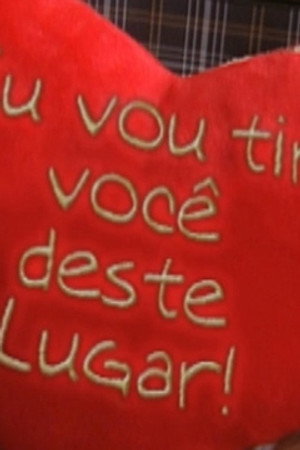 u vou tir
você
deste
LUGar!